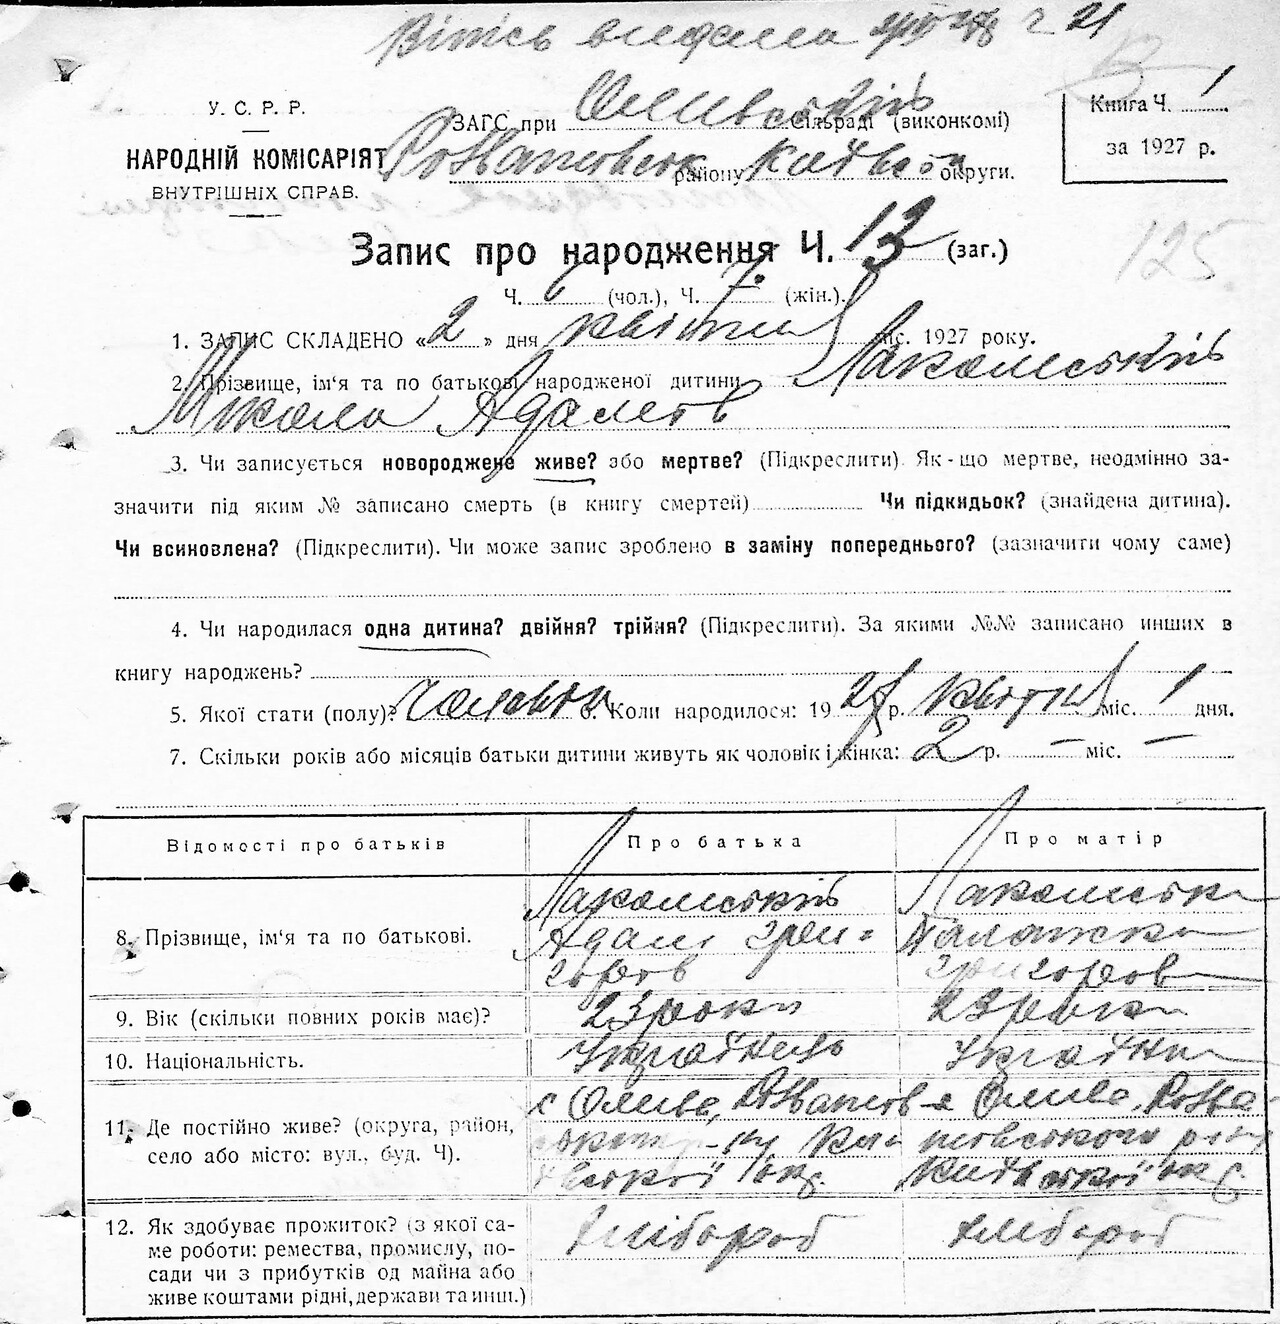 У. С. Р. Р.
НАРОДНІЙ КОМІСАРІЯТ
ВНУТРІШНІХ СПРАВ.
ЗАГС при Оливській сільраді (виконкомі)
району Київської округи.
Книга Ч. 1
за 1927 р.
125
Запис про народження Ч. 13 (заг.)
Ч. 6 (чол.), Ч. 7 (жін.).
1. ЗАПИС СКЛАДЕНО «2» дня квітня міс. 1927 року.
2. Прізвище, ім'я та по батькові народженої дитини Лакомський
Микола Адамов
3. Чи записується новороджене живе? або мертве? (Підкреслити). Як-що мертве, неодмінно за-
значити під яким № записано смерть (в книгу смертей) Чи підкидьок? (знайдена дитина).
Чи всиновлена? (Підкреслити). Чи може запис зроблено в заміну попереднього? (зазначити чому саме)
4. Чи народилася одна дитина? двійня? трійня? (Підкреслити). За якими №№ записано инших в
книгу народжень?
5. Якої стати (полу)? 6. Коли народилося: 1927 р. квітня міс. 1 дня.
7. Скільки років або місяців батьки дитини живуть як чоловік і жінка: 2 р. – міс. –
Відомості про батьків Про батька Про матір
8. Прізвище, ім'я та по батькові. Лакомський Адам Григоров Лакомська Палажка Григорова
9. Вік (скільки повних років має)? 23 роки 23 роки
10. Національність. Українець Українка
11. Де постійно живе? (округа, район,
село або місто: вул., буд. Ч).
с Олива, Розважівського Київської окр.
с Олива, Розважівського Київської окр.
12. Як здобуває прожиток? (з якої са-
ме роботи: ремества, промислу, по-
сади чи з прибутків од майна або
живе коштами рідні, держави та инш.)
Хлібороб Хлібороб